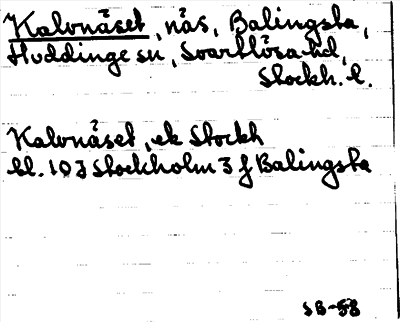 Kalvnäset, näs, Balingsta,
Huddinge sn, Svartlösa hd,
Stockh. l.
Kalvnäset, ek Stockh
bl. 10 I Stockholm 3 f Balingsta
SB-58